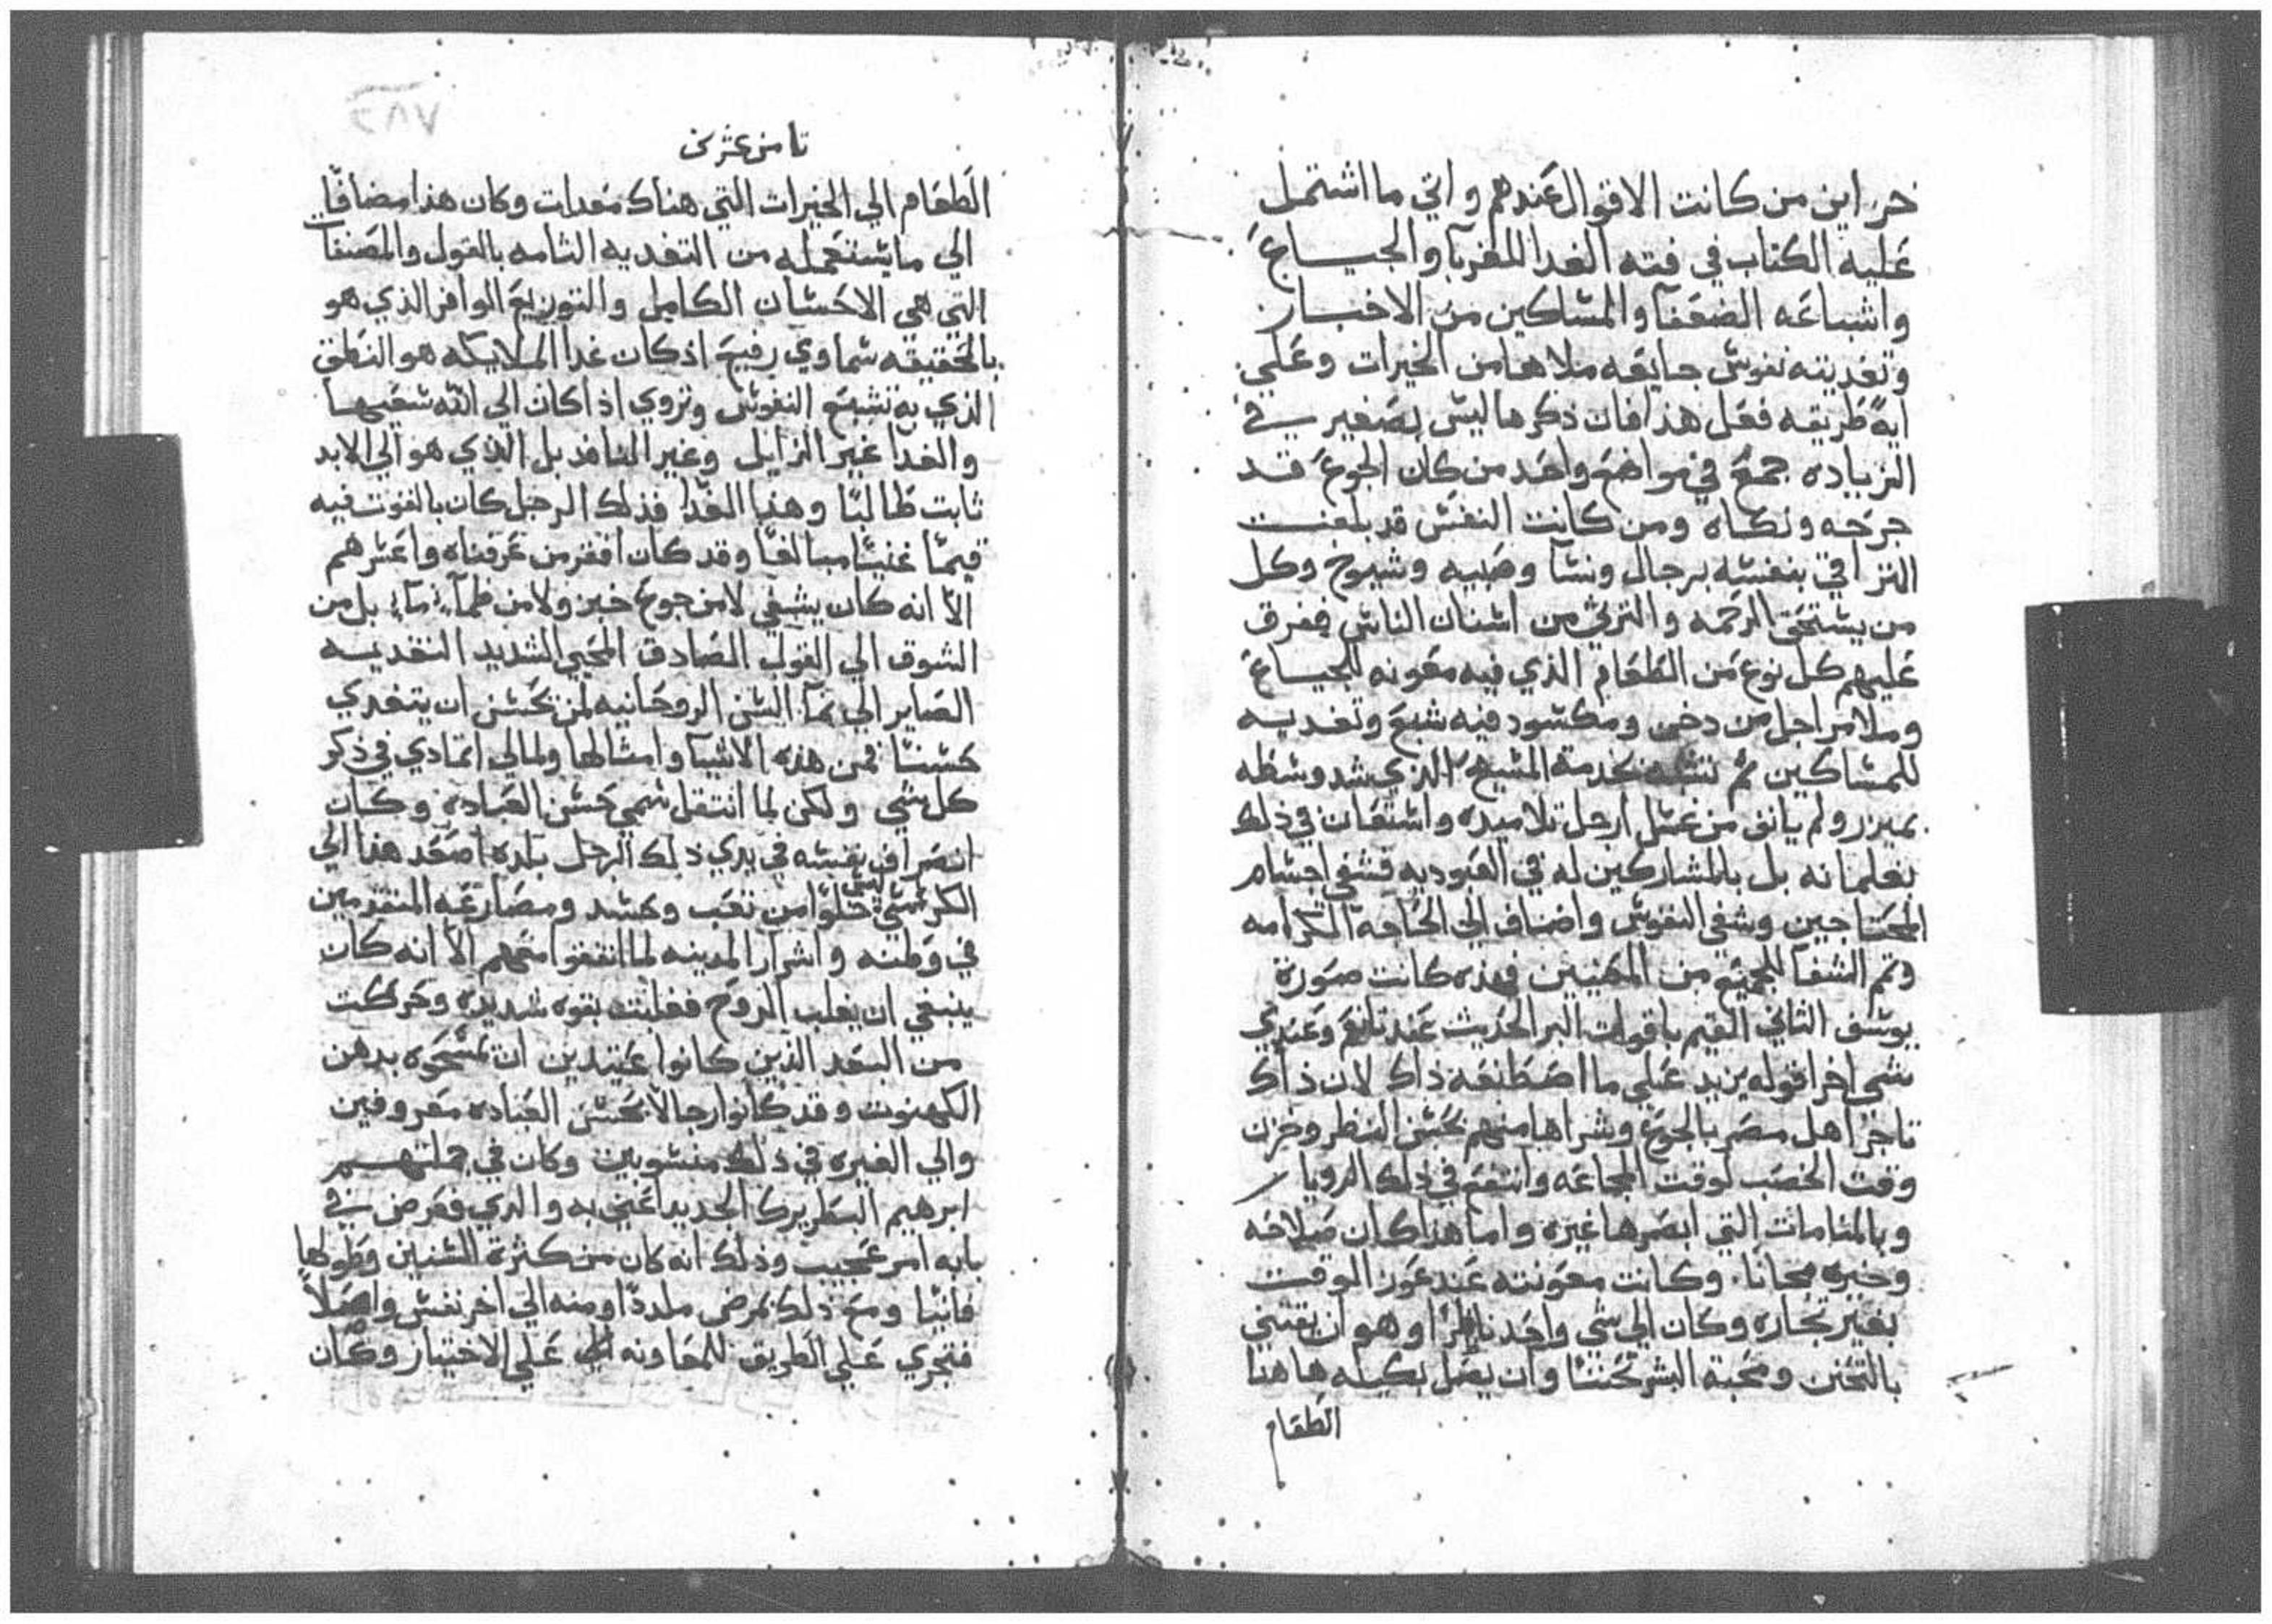 خزاين من كانت الاقوال عندهم واتي ما اشتمل
عليه الكتاب في فته الغدا للغربآ والجياع
واشباعه الضعفآ والمساكين من الاخبار
وتغديته نفوس جايعه ملاها من الخيرات وعلي
اية طريقه فعل هذا فان ذكرها ليس بصغير في
الزياده جمع في مواضع واحد من كان الجوع قد
جرحه ونكاه ومن كانت النفس قد بلغت
التراقي بنفسيه برجال ونسآ وصبيه وشيوخ وكل
من يستحق الرحمه والترثي من اسنان الناس ففرق
عليهم كل نوع من الطعام الذي فيه معونه للجياع
وملا مراجل من دخن ومكسود فيه شبع وتغديه
للمساكين ثم تشبه بخدمة المسيح الذي شد وسطه
بميزر ولم يانف من غسل ارجل تلاميده واستعان في ذلك
بغلمانه بل بالمشاركين له في العبوديه فشفى اجسام
المحتاجين وشفى النفوس واضاف الي الحاجه الكرامه
وتم الشفآ للجميع من المهنيين فهذه كانت صورة
يوسف الثاني القيم باقوات البر الحديث عند تابع وعندي
شي اخر اقوله يزيد علي ما اصطنعه ذاك لان ذاك
تاجر اهل مصر بالجوع وشراها منهم بحسن النظر وخزن
وقت الخصب لوقت المجاعه وانتفع في ذلك الرويا
وبالمنامات التي ابصرها غيره واما هذا كان صلاحه
وخيره مجانا وكانت معونته عند عوز الوقت
بغير تجاره وكان الي شي واحد ناظرا وهو ان يقتني
بالتحنن ومحبة البشر تحننا وان يصل بكيله هاهنا
الطعام
ثامن عشرين
الطعام الي الخيرات التي هناك معدات وكان هذا مضافا
الي ما يستعمله من التغديه التامه بالقول والمصنفات
التي هي الاحسان الكامل والتوزيع الوافر الذي هو
بالحقيقه سماوي رفيع اذ كان غدا الملايكه هو النطق
الذي به تشبع النفوس وتروي اذا كان الي الله سعيها
والغدا غير الزايل وغير النافذ بل الذي هو الي الابد
ثابت طالبا وهذا الغدا فذلك الرجل كان بالقوت فيه
قيما غنيا مبالغا وقد كان افقر من عرفناه واعسرهم
الا انه كان يشفي لا من جوع خبز ولا من ظمآ مآ بل من
الشوق الي القول الصادق المحيي الشديد التغديه
الصاير الي نمآ السن الروحانيه لمن يحسن ان يتغدي
كسننا فمن هذه الاشيا وامثالها ولما لي اتمادي في ذكر
كل شي ولكن لما انتقل سمي حسن العباده وكان
انصراف نفسه في يدي ذلك الرجل بلده اصعد هذا الي
الكرسي ليس خلوا من تعب وحسد ومصارعه المتقدمين
في وطنه واشرار المدينه لما اتفقوا معهم الا انه كان
ينبغي ان يغلب الروح فغلبت بقوه شديده وحركت
من البعد الذين كانوا عتيدين ان يمسحوه بدهن
الكهنوت وقد كانوا رجالا بحسن العباده معروفين
والي الغيره في ذلك منسوبين وكان في جملتهم
ابرهيم البطريرك الجديد اعني به والدي ففرض في
بابه امر عجيب وذلك انه كان من كثرة السنين وطولها
فانيا ومع ذلك بمرض ملدّا ومنه الي اخر نفس واصلاً
فتجري علي الطريق للمعاونه علي الاختيار وكان